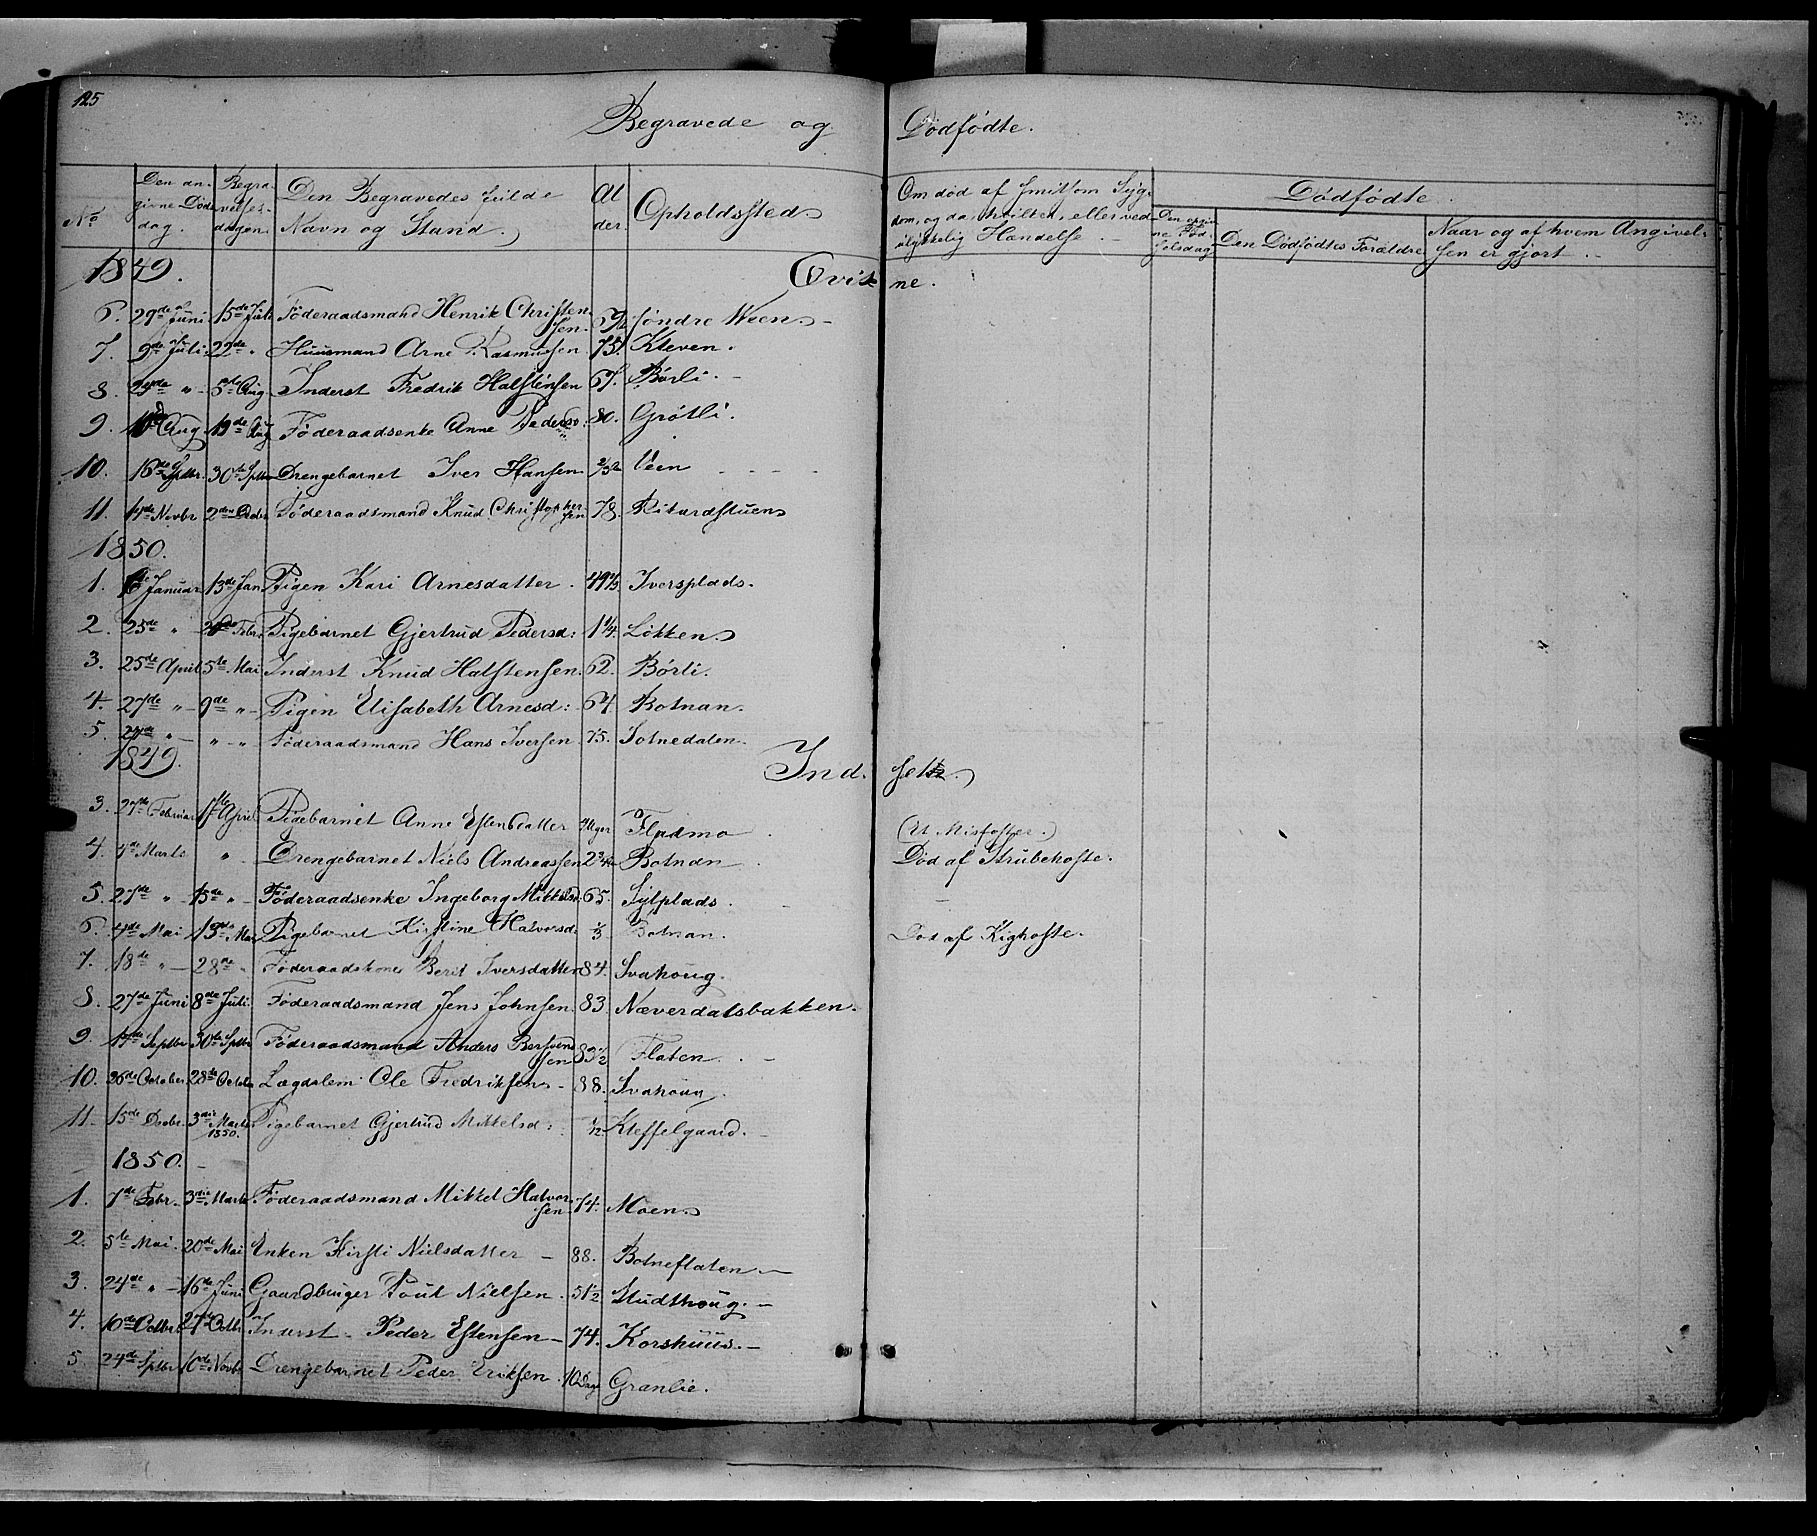 125
Begravede og Dødfødte.
No | Den angivne Dødsdag. | Begravelsesdagen. | Den Begravedes fulde Navn og Stand. | Alder | Opholdssted. | Om død af smitsom Sygdom, og da hvilken, eller ved ulykkelig Hændelse. | Dødfødte.
Den angivne Fødselsdag | Den Dødfødtes Forældre | Naar og af hvem Angivelsen er gjort.
1849. Qvikne.
6. 29de Juni 15de Juli Føderaadsmand Henrik Christensen. søndre Ween.
7. 9de Juli 22de " Huusmand Arne Rasmussen 75. Kleven.
8. " 5te Aug. Inderst Fredrik Halstensen 67. Børli.
9. Aug 19de Aug Føderaadsenke Anne Pedersd: 80. Grøtli.
10. 16de Sptbr. 30te Sptbr Drengebarnet Iver Hansen Veen
11. 17de Novbr 2den Decbr Føderaadsmand Knud Christophersen 78. Ritardstuen
1850.
1. Januar 13de Jan Pigen Kari Arnesdatter. 49 Iversplads.
2. 25de " Febr. Pigebarnet Gjertrud Pedersd: 1 1/4. Løkken.
3. 25de April 5te Mai Inderst Knud Halstensen. 62. Børli.
4. 27de " 9de " Pigen Elisabeth Arnesd: 64. Botnan.
5. 27de " " " Føderaadsmand Hans Iversen 75. Sotnedalen.
1849. Indset.
3. 27de Februar April Pigebarnet Anne Estensdatter Uger Fladmo (At Misfoster.)
4. 4de Marts " Drengebarnet Niels Andreassen 2 3/4 Botnan Død af Strubehoste.
5. 27de " 15de " Føderaadsenke Ingeborg Mikkelsd. 65. Sylplads.
6. 4de Mai 13de Mai Pigebarnet Kirstine Halvorsd. 1/3 Botnan. Død af Kighoste.
7. 18de " 28de " Føderaadskone Berit Iversdatter 84. Svahoug.
8. 27de Juni 8de Juli. Føderaadsmand Jens Johnsen 83. Næverdalsbakken.
9. 17de Septbr 30te Sptbr Føderaadsmand Anders Bersvendsen 83 1/2 Floten.
10. 26de October 28de Octobr Lægdslem Ole Fredriksen 88. Svahoug.
11. 15de Decbr. 3die Marts 1850. Pigebarnet Gjertrud Mikkelsd: 1/12 Kleffelgaard.
1850.
1. 7de Febr. 3die Marts Føderaadsmand Mikkel Halvorsen 74. Moen.
2. 5te Mai. 20de Mai Enken Kirsti Nielsdatter 88. Botnefloten.
3. 24de " 16de Juni Gaardbruger Poul Nielsen. 51 1/2 Studthoug.
4. 10de Octbr 27de Octbr Inderst Peder Estensen 74. Korshuus.
5. 24de Sptbr 10de Novbr Drengebarnet Peder Eriksen. 10 Dage Granlie.